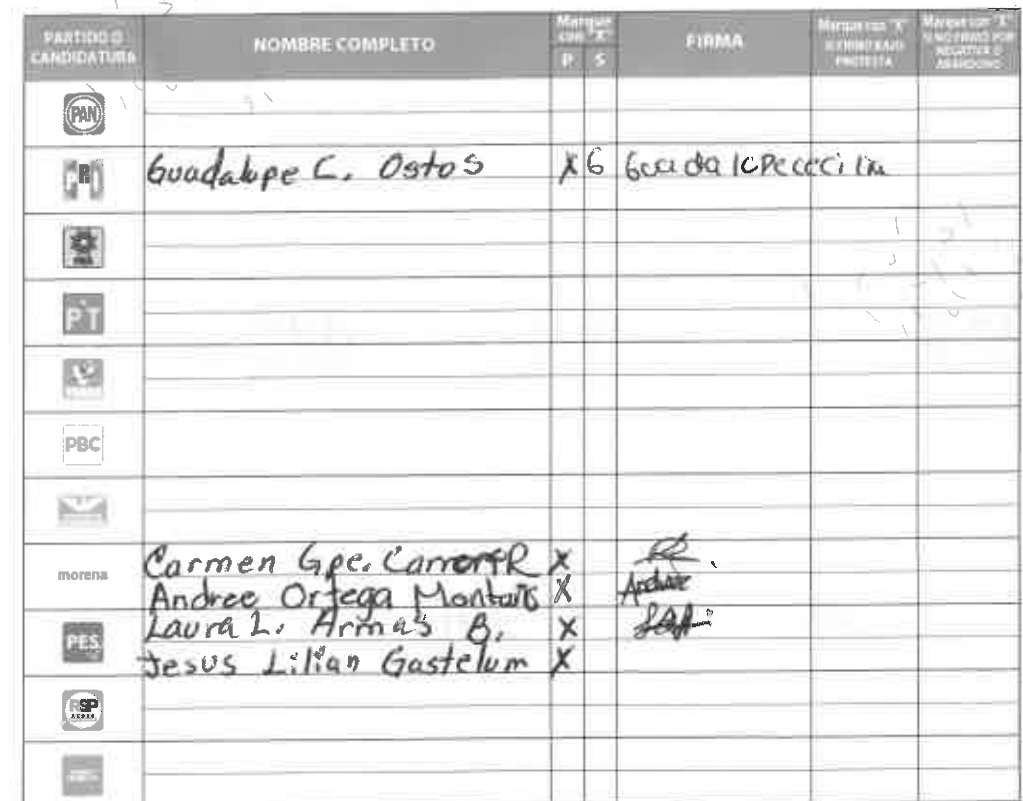 PARTIDO O CANDIDATURA NOMBRE COMPLETO Marque con "X" P S FIRMA Marque con "X" SI FIRMÓ BAJO PROTESTA Marque con "X" SI NO FIRMÓ POR NEGATIVA O ABANDONO
PAN
PRI Guadalupe C. Ostos X 6 Guadalupe cecilia
PT
PBC
morena Carmen Gpe. R X
Andree Ortega X Andree
PES Laura L. Armas B. X
Jesus Lilian Gastelum X
RSP